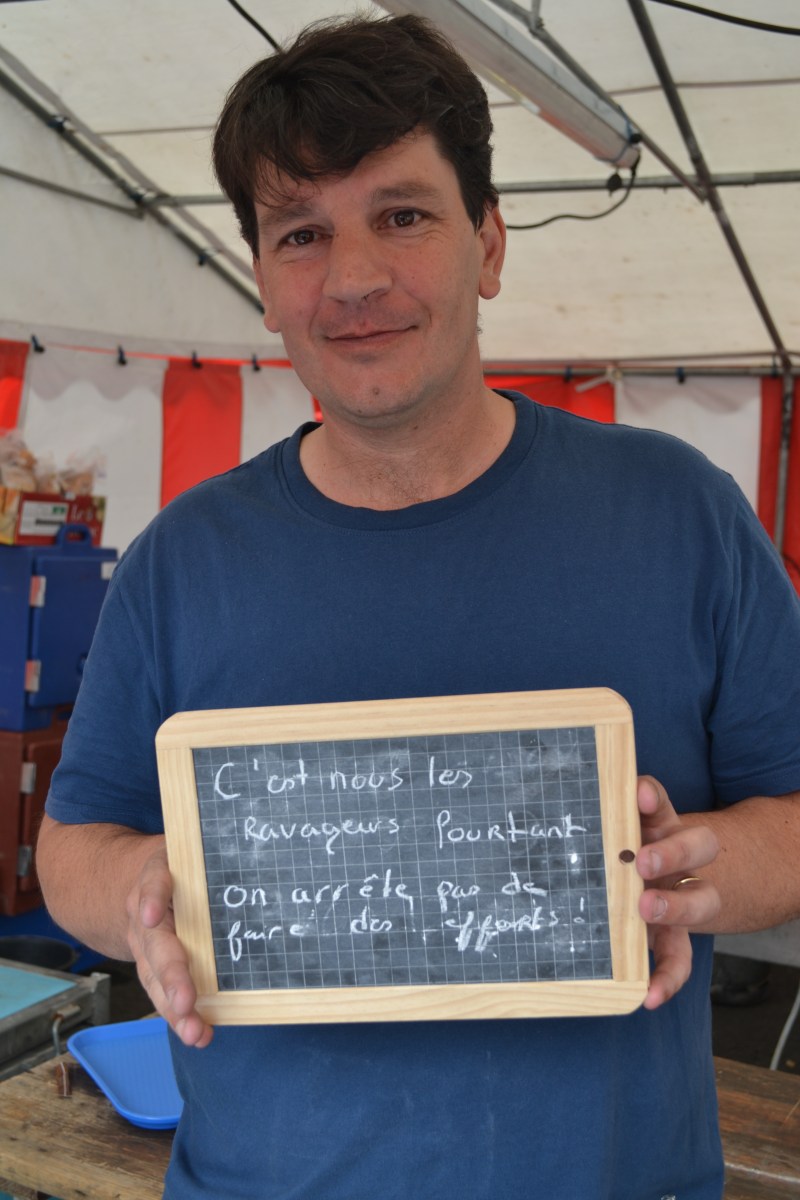 C'est nous les
Ravageurs Pourtant
on arrête pas de
faire des efforts !